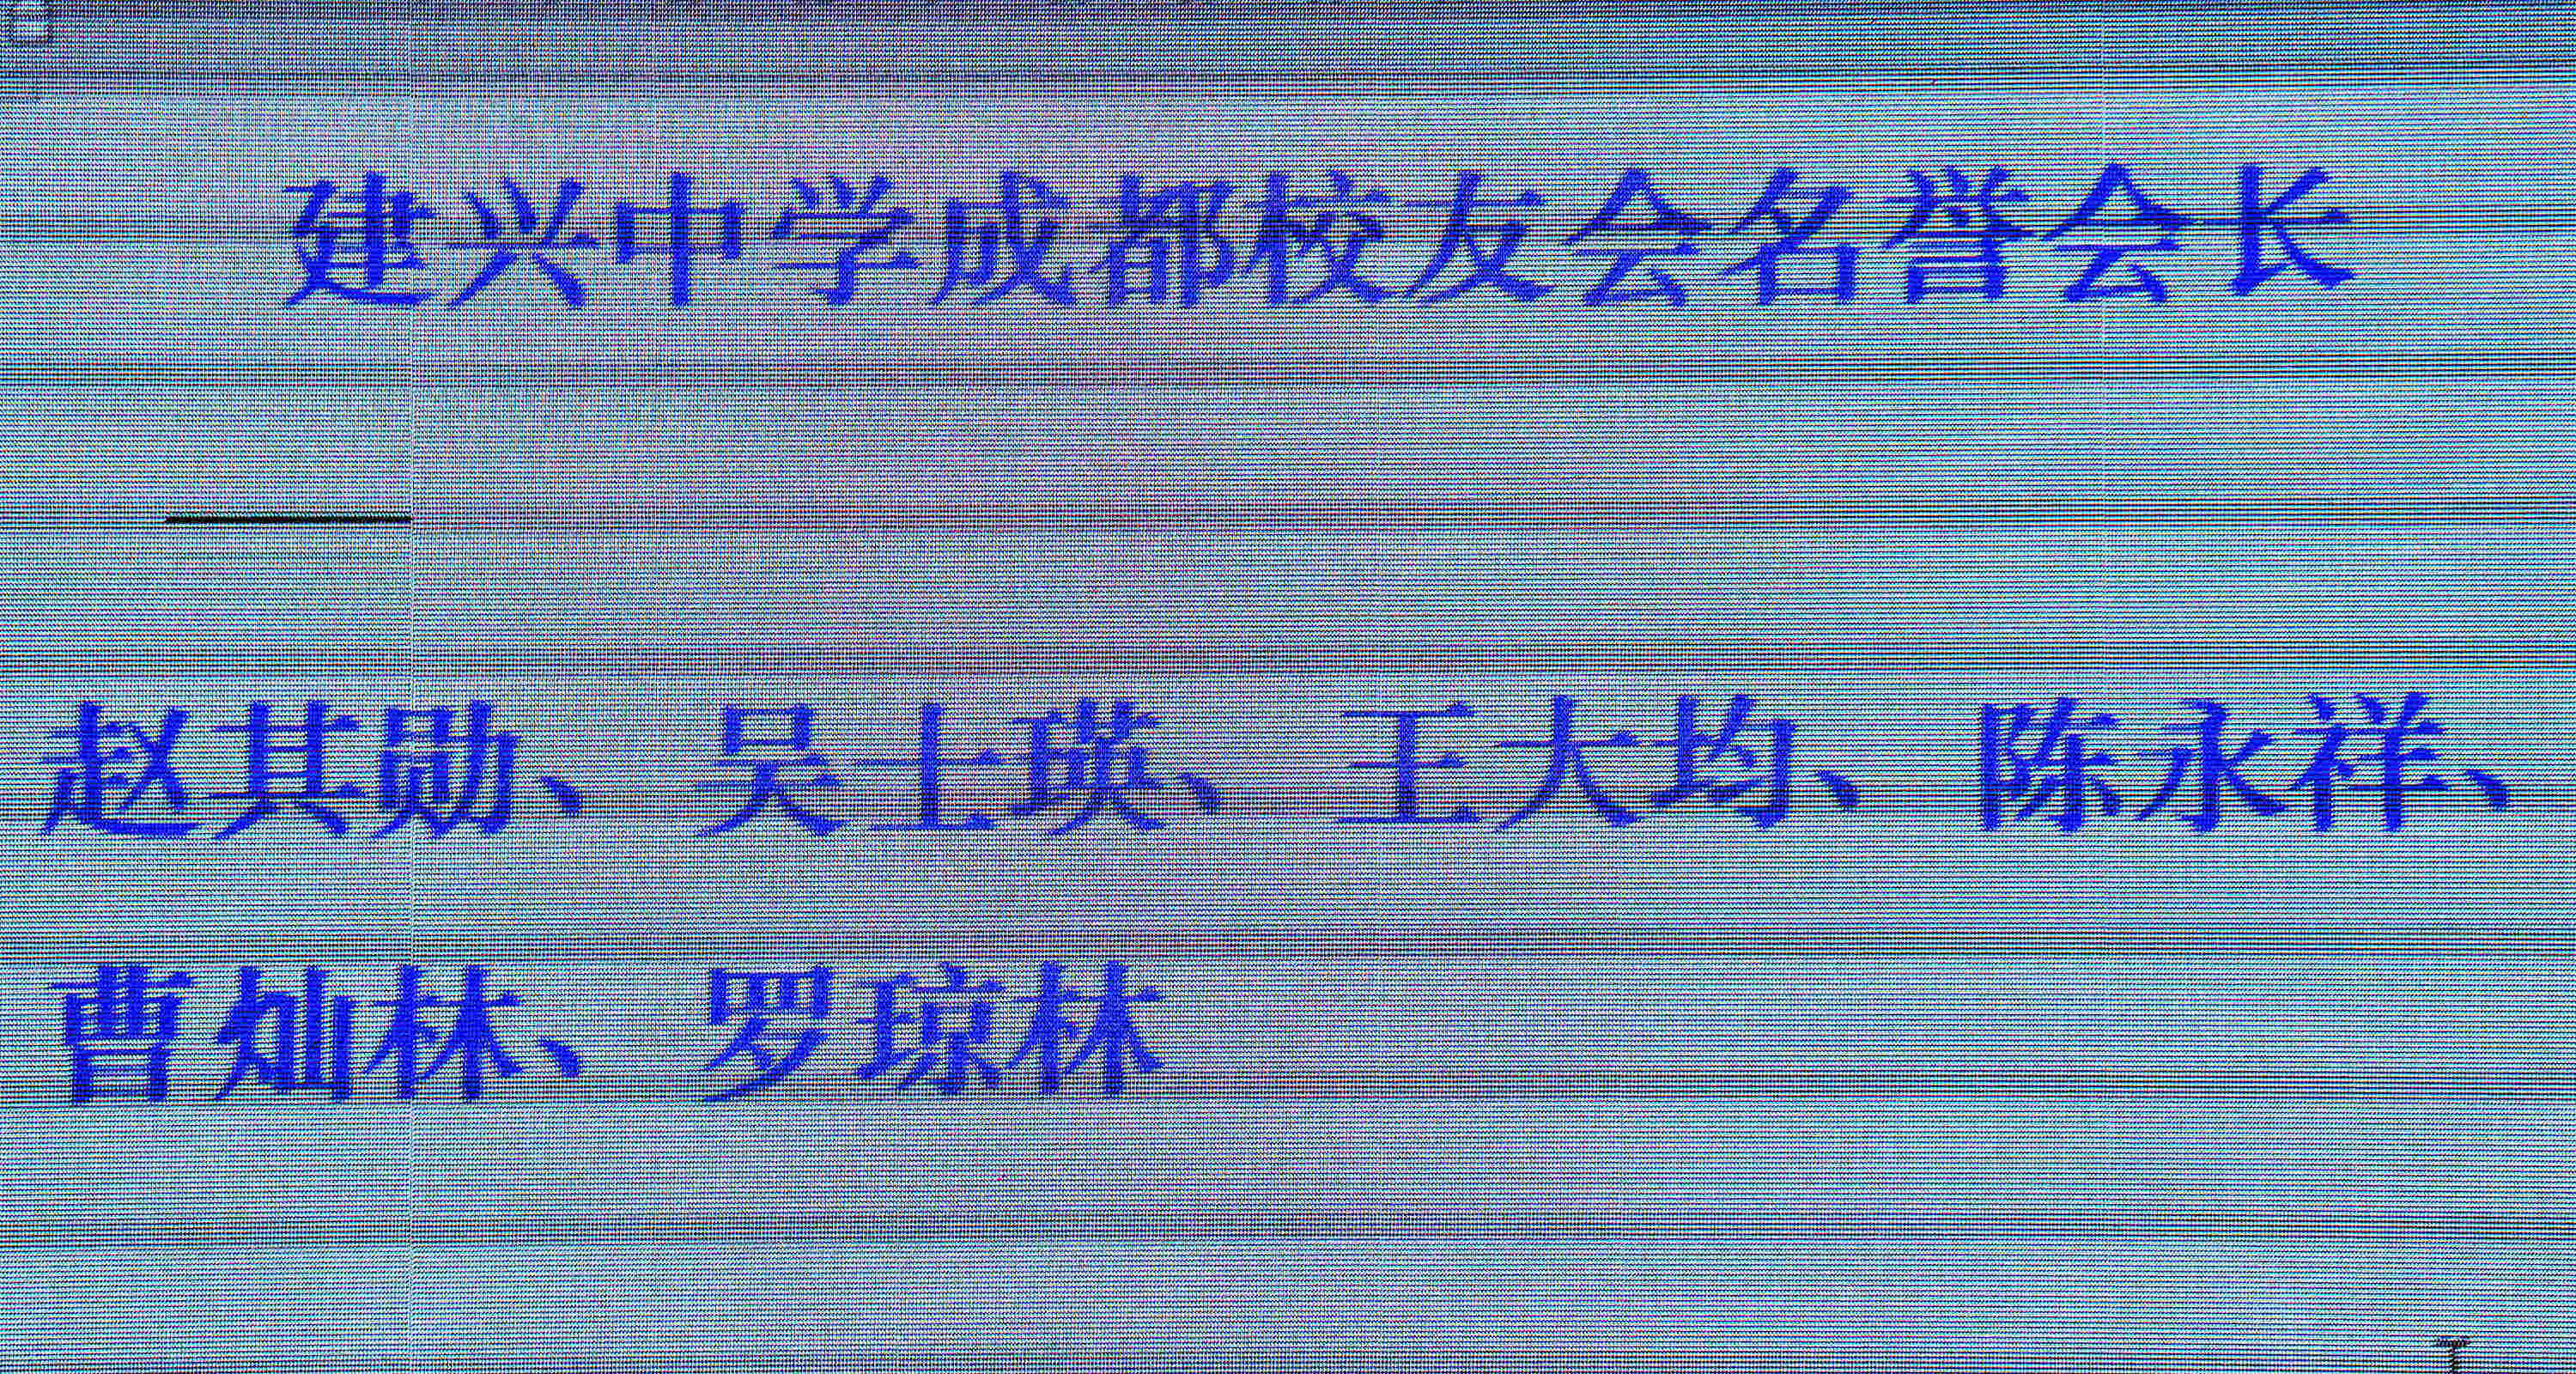 建兴中学成都校友会名誉会长
赵其勋、吴士瑛、王大均、陈永祥、
曹灿林、罗琼林